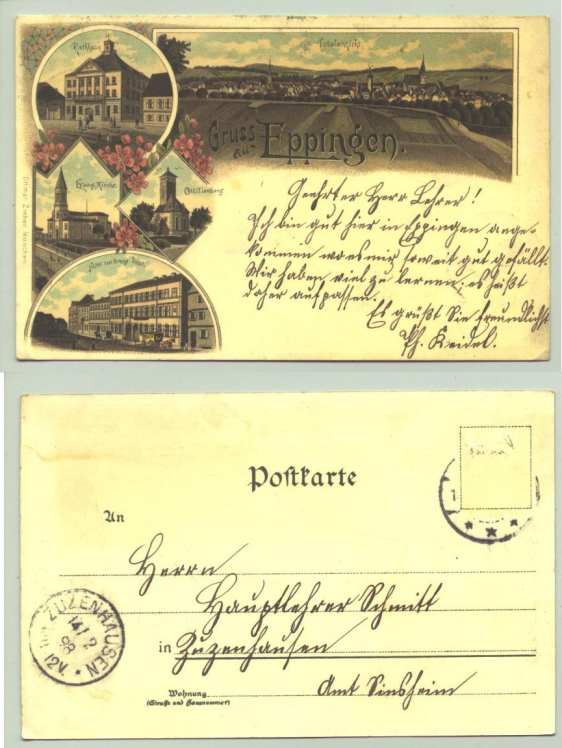 Rathhaus
Totalansicht
Gruss
aus Eppingen.
Evang. Kirche
Ottilienberg
Geehrter Herr Lehrer!
Ich bin gut hier in Eppingen ange-
kommen wo es mir soweit gut gefällt.
Wir haben viel zu lernen, es heißt
daher aufpassen.
Es grüßt Sie freundlichst
Ph. Keidel.
Postkarte
An
Herrn
Hauptlehrer Schmitt
in Zuzenhausen
Amt Sinsheim
Wohnung
(Straße und Hausnummer)
ZUZENHAUSEN
14/2
98
12V.
1